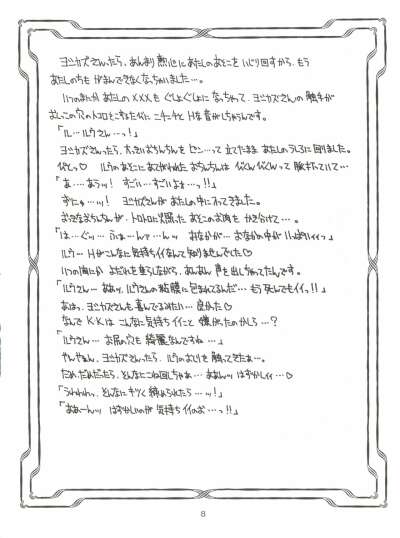 ヨリカズさんったら、あんまり熱心にあたしのあそこをいじり回すから、もう
あたしの方もがまんできなくなっちゃいました…。
いつのまにか あたしのXXXも ぐしょぐしょになっちゃって、ヨリカズさんの 触手が
「ル…ルウさん…っ!」
ヨリカズさんったら、大っきいおちんちんを ビン…って 立てたまま あたしのうしろに回りました。
「あ…、あうッ! すごい…すごいよォ…っ!!」
ずにゅ…ッ! ヨリカズさんが あたしの中に入ってきました。
おっきなおちんちんが、トロトロになった あそこのお肉を かき分けて…。
「は…ぐッ… ふぁ…んァ…んッ おなかが… おなかの中が いっぱいィィっ」
ルウ… Hがこんなに気持ちイイなんて知りませんでした♡
いつの間にか よだれを垂らしながら、あんあん 声を出しちゃってたんです。
「ルウさん… ああッ、ルウさんの粘膜に包まれてるんだ… もう死んでもイイっ!!」
あはっ、ヨリカズさんも喜んでるみたい… 良かった♡
なんで KKは こんなに気持ちイイこと 嫌がったのかしら…?
「ルウさん… お尻の穴も 綺麗なんですね…」
やんやぁん、ヨリカズさんったら、ルウのおしりを 触ってきたぁ…。
だめ、だめだったら、そんなにこね回しちゃぁ… ああんッ はずかしィィ…♡
「うわわわっ、そんなに キツく 締められたら…ッ!」
「ああ〜んッ はずかしいのが 気持ちイイのぉ…っ!!」
8